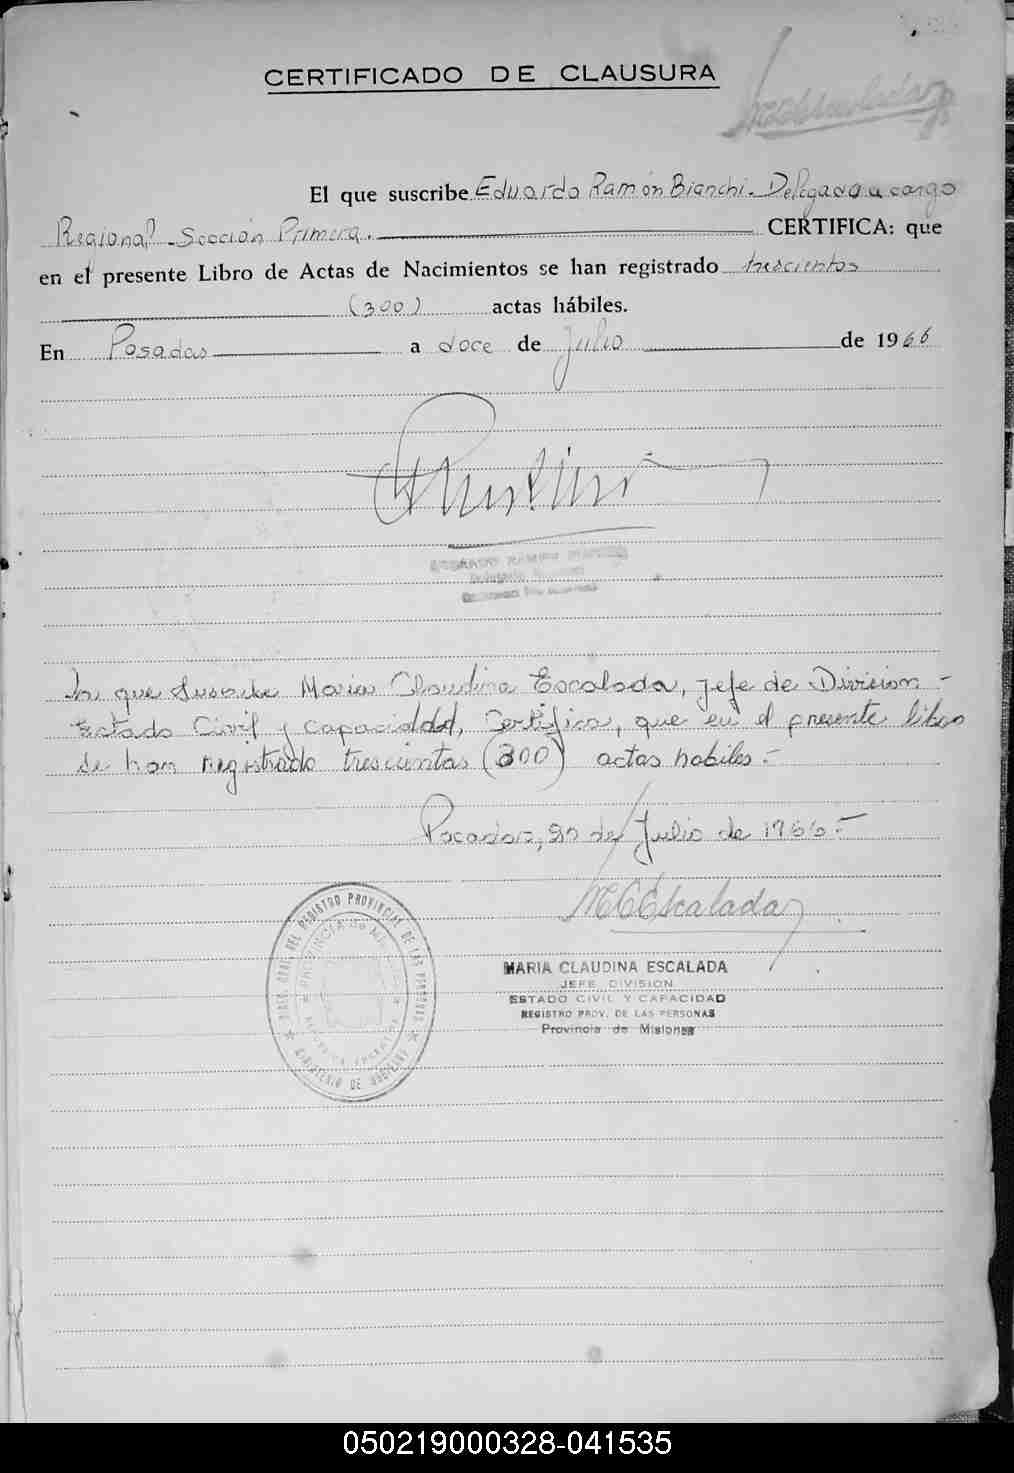 CERTIFICADO DE CLAUSURA
MCEscalada
El que suscribe Eduardo Ramón Bianchi. Delegado a cargo
Regional Sección Primera. CERTIFICA: que
en el presente Libro de Actas de Nacimientos se han registrado trescientos
(300) actas hábiles.
En Posadas a doce de Julio de 1966
La que suscribe Maria Claudina Escalada, Jefe de Division -
Estado Civil y Capacidad, Certifica, que en el presente libro
se han registrado trescientas (300) actas habiles -
Posadas, de Julio de 1966 -
MCEscalada
MARIA CLAUDINA ESCALADA
JEFE DIVISION
ESTADO CIVIL Y CAPACIDAD
REGISTRO PROV. DE LAS PERSONAS
Provincia de Misiones
DIREC. GRAL. DEL REGISTRO PROVINCIAL DE LAS PERSONAS
PROVINCIA de MISIONES
REPUBLICA ARGENTINA
MINISTERIO DE GOBIERNO
050219000328-041535